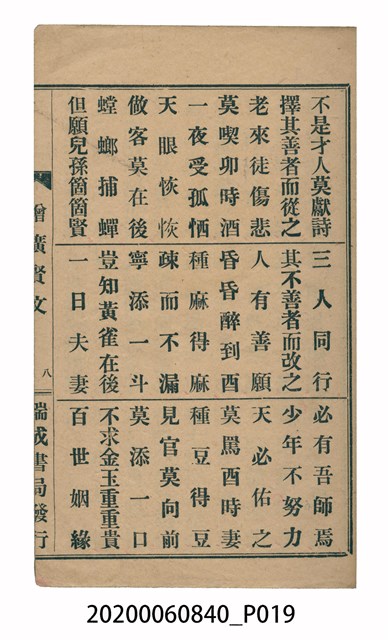 不是才人莫獻詩 三人同行 必有吾師焉
擇其善者而從之 其不善者而改之 少年不努力
老來徒傷悲 人有善願 天必佑之
莫喫卯時酒 昏昏醉到酉 莫罵酉時妻
一夜受孤恓 種麻得麻 種豆得豆
天眼恢恢 疎而不漏 見官莫向前
做客莫在後 寧添一斗 莫添一口
螳螂捕蟬 豈知黃雀在後 不求金玉重重貴
但願兒孫箇箇賢 一日夫妻 百世姻緣
增廣賢文 八 瑞成書局發行
20200060840_P019